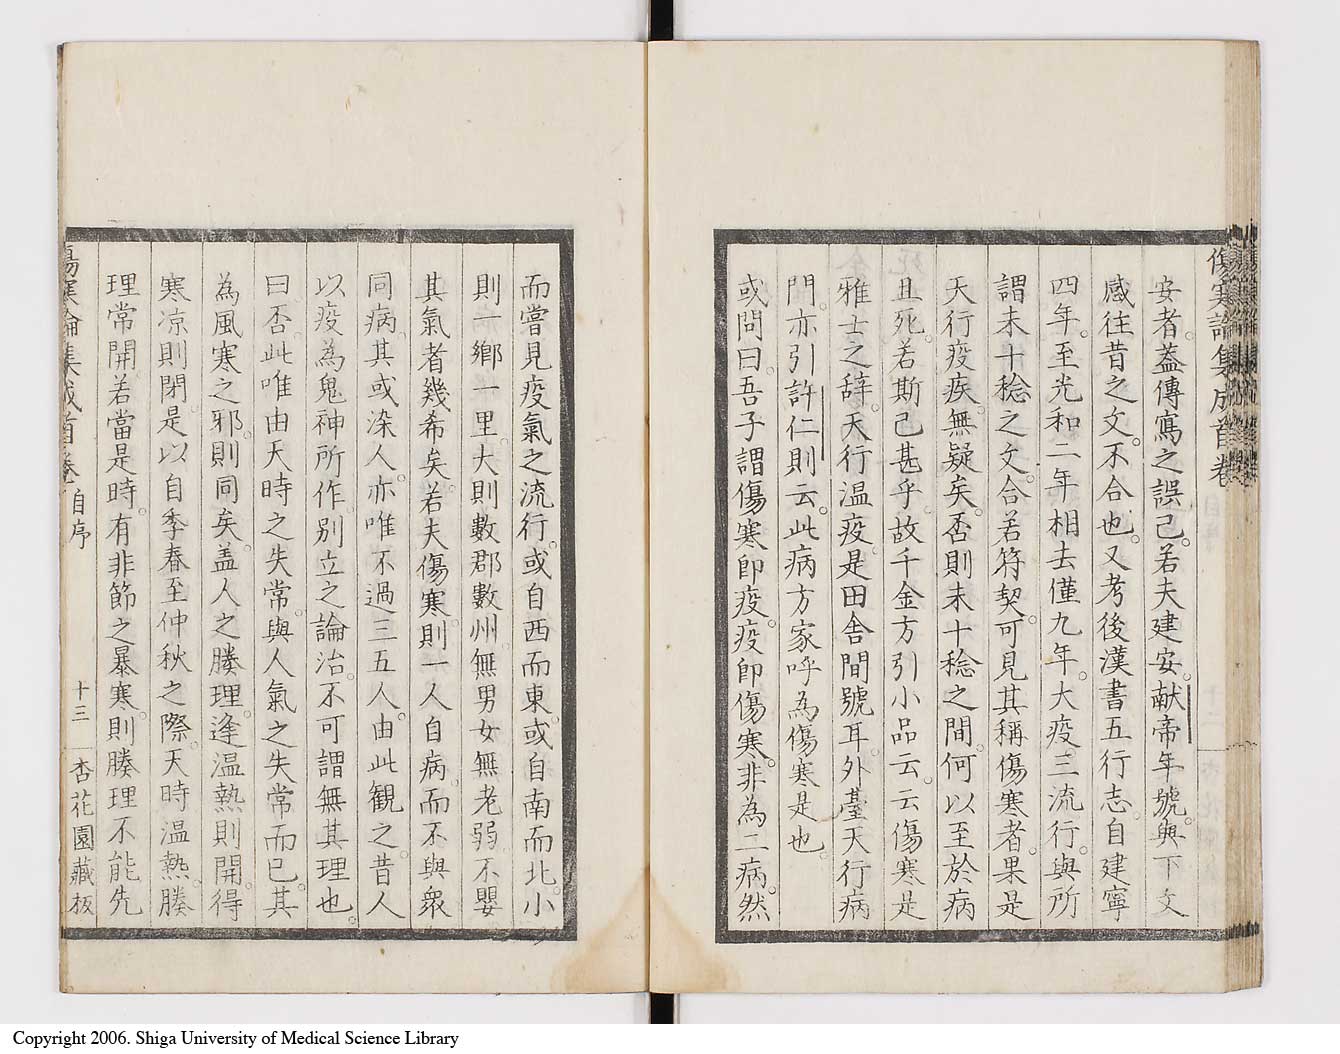 傷寒論集成首卷
安者。蓋傳寫之誤已。若夫建安。献帝年號。與下文
感往昔之文。不合也。又考後漢書五行志。自建寧
四年。至光和二年相去僅九年。大疫。三流行。與所
謂未十稔之文。合若符契。可見其稱傷寒者。果是
天行疫疾。無疑矣。否則未十稔之間何以至於病
且死。若斯已甚乎。故千金方引小品云。云傷寒是
雅士之辞。天行溫疫。是田舎間號耳。外臺天行病
門。亦引許仁則云。此病方家呼為傷寒是也。
或問曰。吾子謂傷寒即疫。疫即傷寒。非為二病。然
而嘗見疫氣之流行。或自西而東。或自南而北。小
則一鄉一里。大則數郡數州。無男女無老弱。不嬰
其氣者幾希矣。若夫傷寒。則一人自病。而不與衆
同病。其或染人。亦唯不過三五人。由此観之。昔人
以疫為鬼神所作。別立之論治。不可謂無其理也。
曰否。此唯由天時之失常。與人氣之失常而已。其
為風寒之邪。則同矣。盖人之腠理。逢溫熱則開。得
寒凉則閉。是以自季春至仲秋之際。天時溫熱。腠
理常開。若當是時。有非節之暴寒。則腠理不能先
傷寒論集成首卷 自序 十三 杏花園藏板
Copyright 2006. Shiga University of Medical Science Library